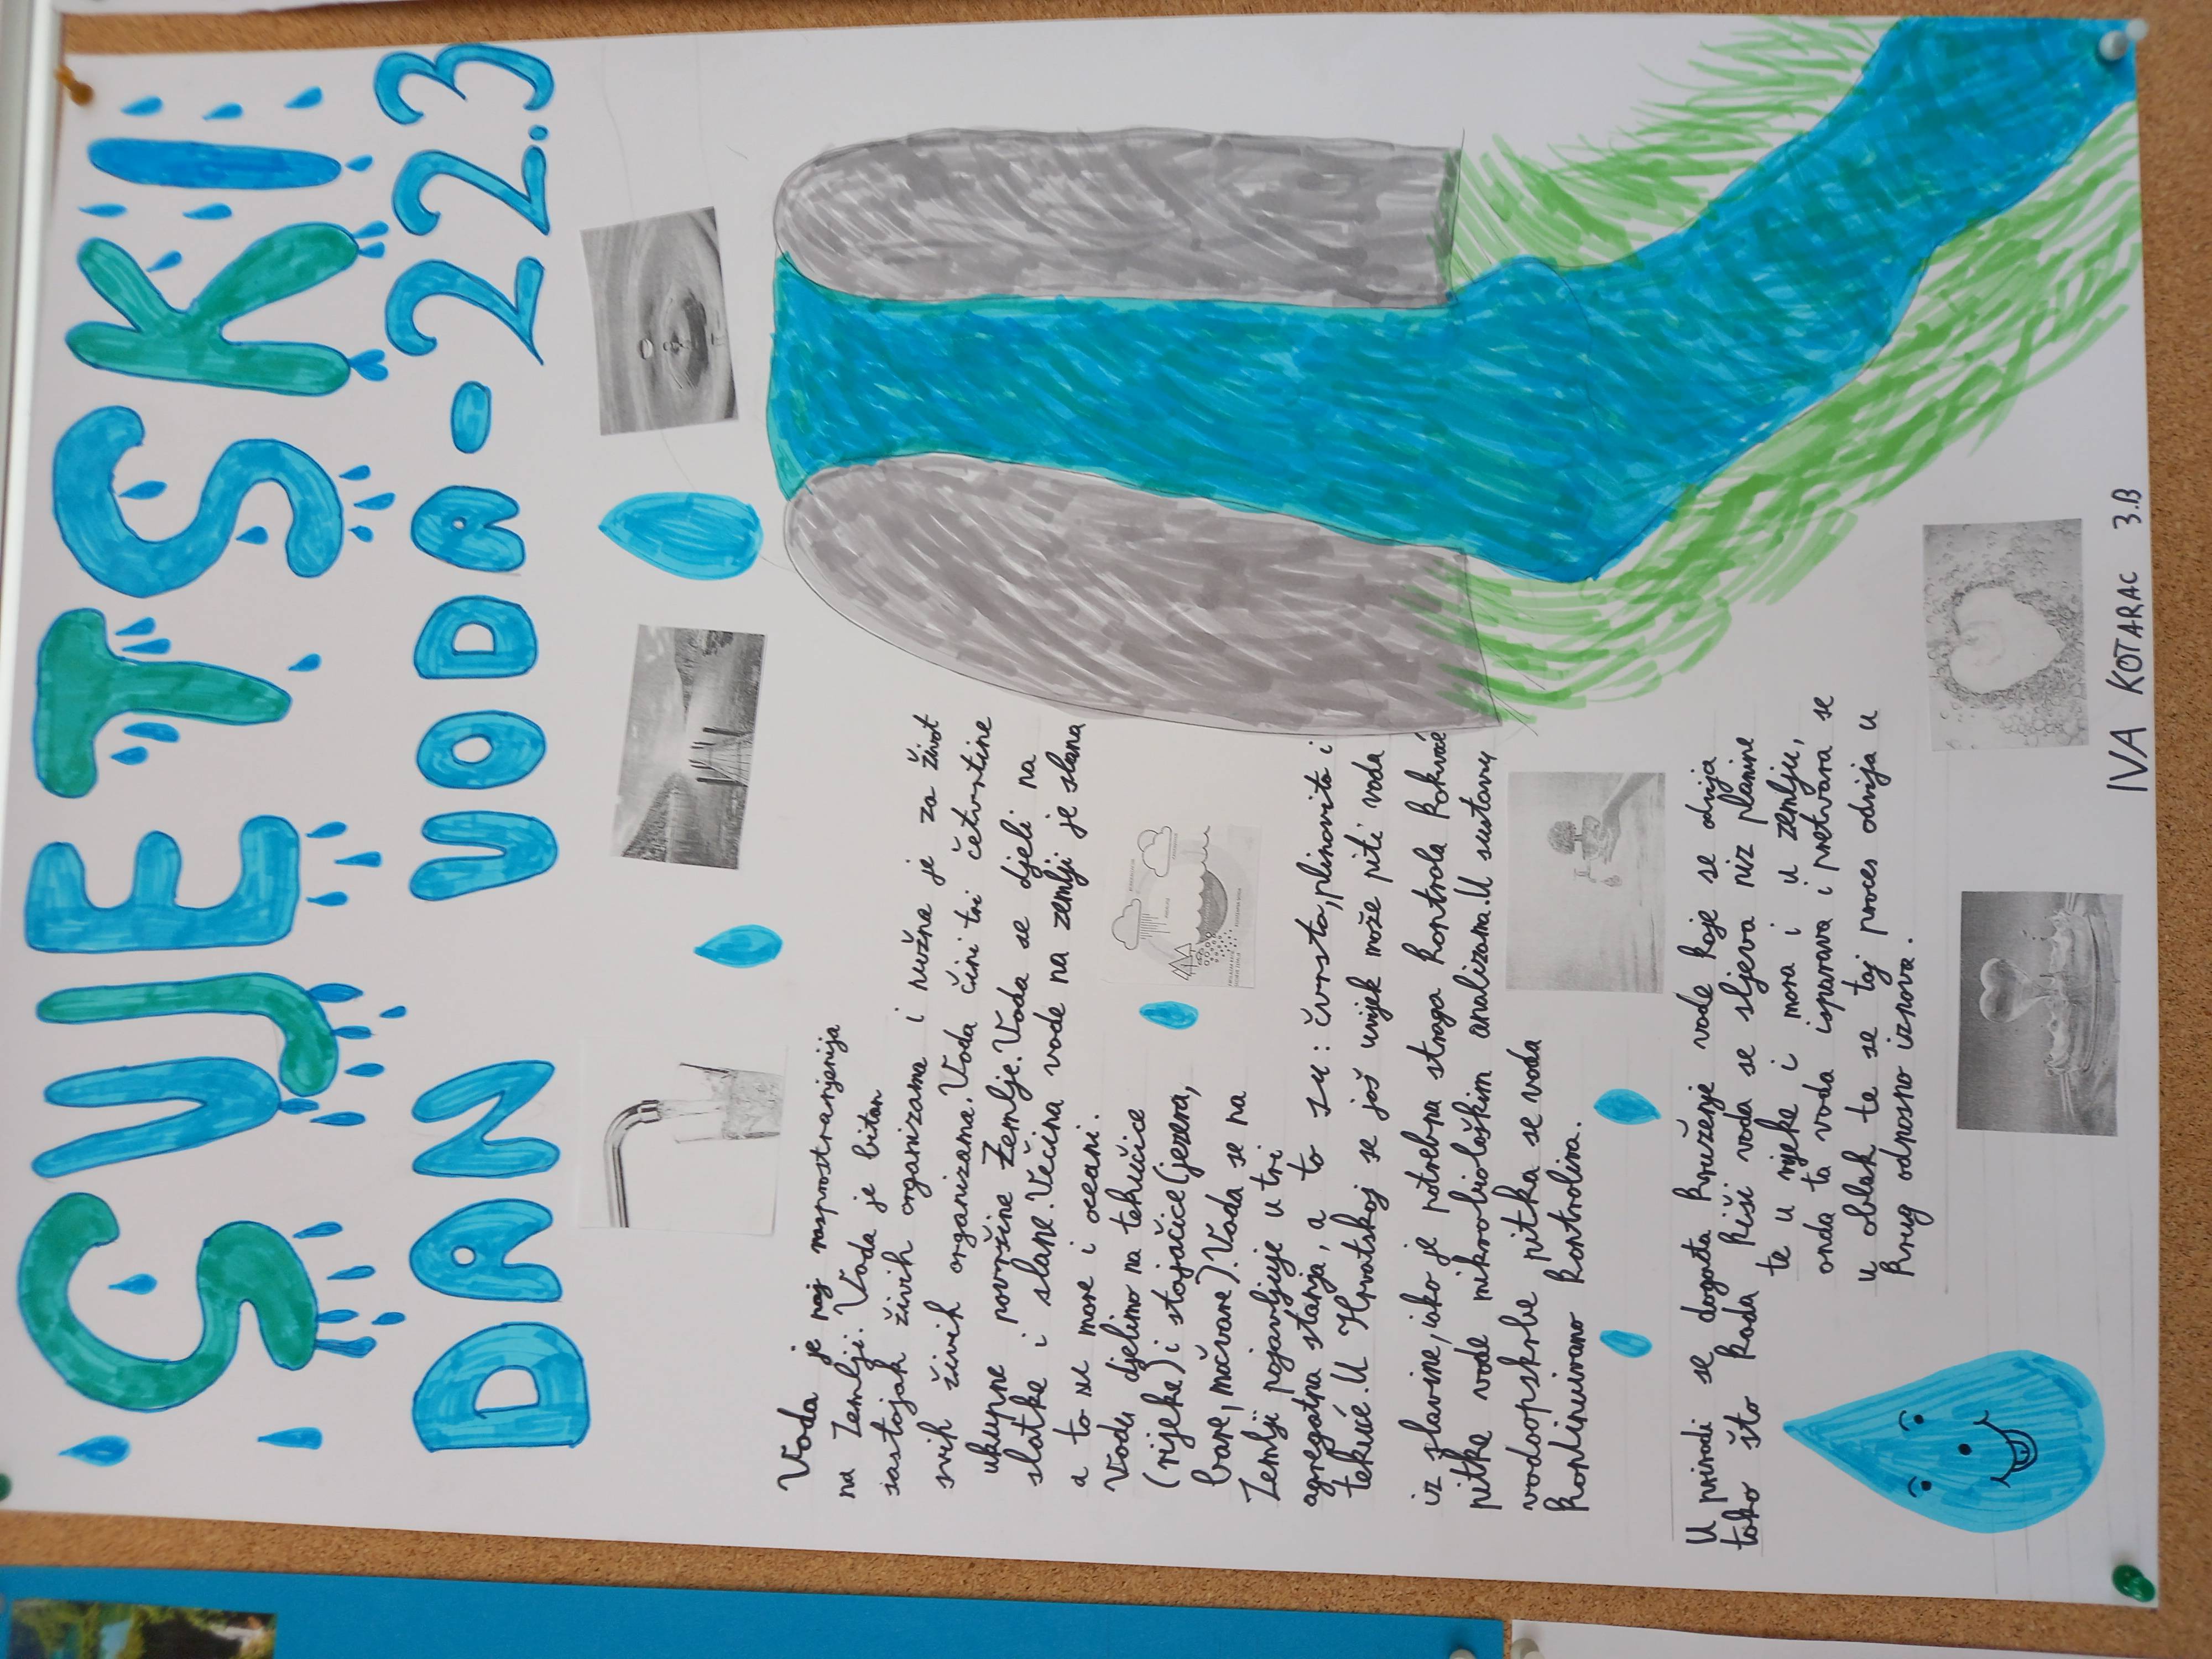 SVJETSKI
DAN VODA - 22.3
Voda je naj rasprostranjenija
na Zemlji. Voda je bitan
sastojak živih organizama i nužna je za život
svih živih organizama. Voda čini tri četvrtine
ukupne površine Zemlje. Voda se djeli na
slatke i slane. Većina vode na zemlji je slana
a to su more i oceani.
Vodu djelimo na tekućice
(rijeke) i stajaćice (jezera,
bare, močvare). Voda se na
Zemlji pojavljuje u tri
agregatna stanja, a to su: čvrsto, plinovito i
tekuće. U Hrvatskoj se još uvijek može piti voda
iz slavine, iako je potrebna stroga kontrola kakvoće
pitke vode mikrobiološkim analizama. U sustavu
vodoopskrbe pitka se voda
kontinuirano kontrolira.
U prirodi se događa kruženje vode koje se odvija
tako što kada kiši voda se sljeva niz planine
te u rijeke i mora i u zemlju,
onda ta voda isparava i pretvara se
u oblak te se taj proces odvija u
krug odnosno iznova.
IVA KOTARAC 3.B